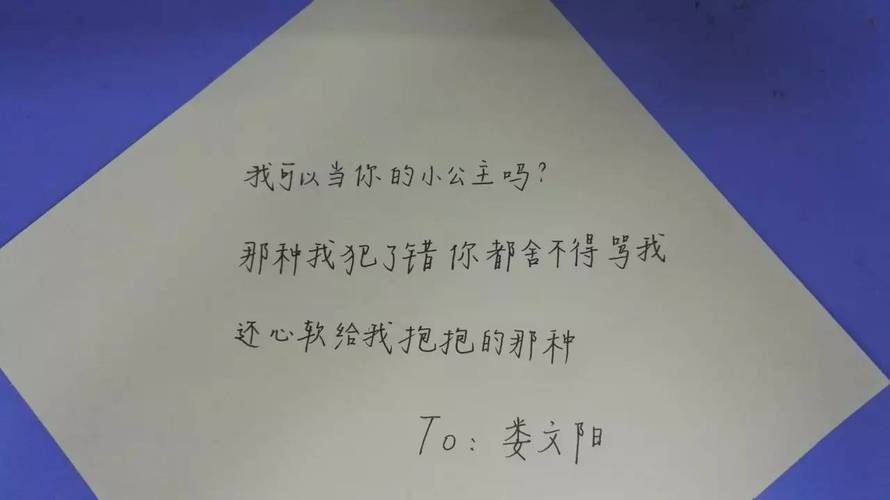 我可以当你的小公主吗?
那种我犯了错你都舍不得骂我
还心软给我抱抱的那种
To: 娄文阳